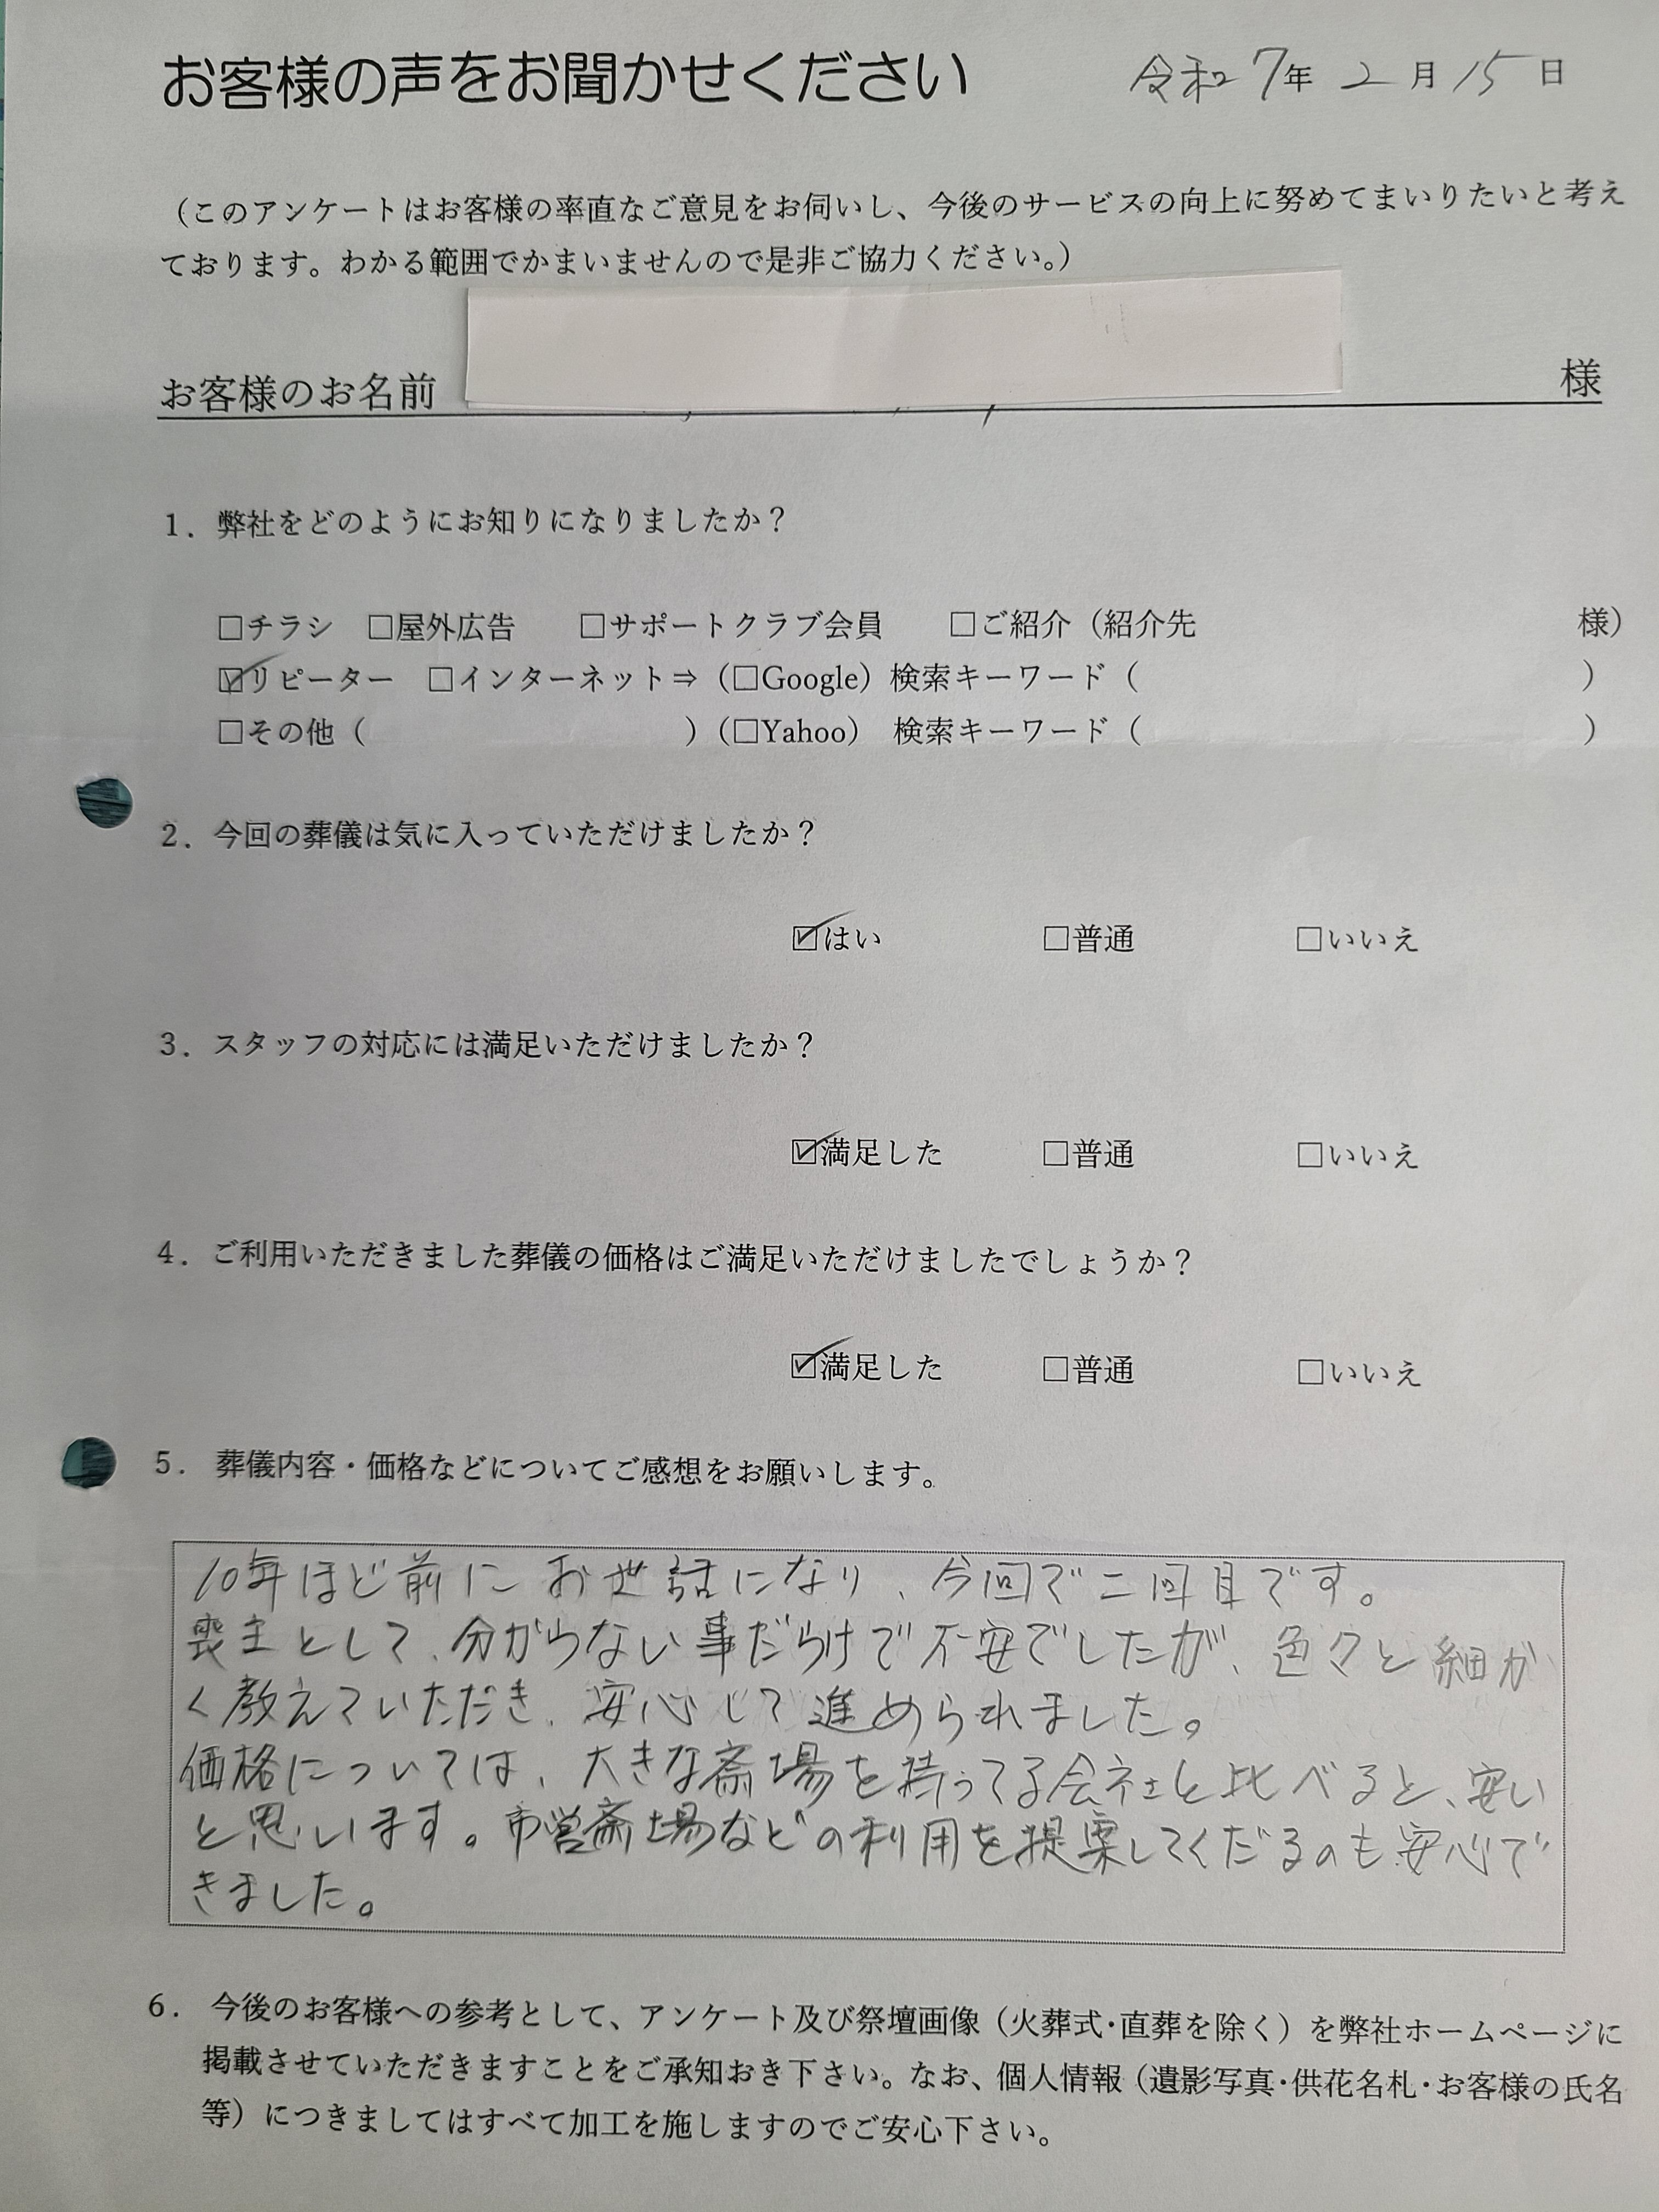 お客様の声をお聞かせください 令和7年 2月15日
（このアンケートはお客様の率直なご意見をお伺いし、今後のサービスの向上に努めてまいりたいと考え
ております。わかる範囲でかまいませんので是非ご協力ください。）
お客様のお名前 様
1．弊社をどのようにお知りになりましたか？
□チラシ □屋外広告 □サポートクラブ会員 □ご紹介（紹介先 様）
☑リピーター □インターネット⇒（□Google）検索キーワード（ ）
□その他（ ）（□Yahoo） 検索キーワード（ ）
2．今回の葬儀は気に入っていただけましたか？
☑はい □普通 □いいえ
3．スタッフの対応には満足いただけましたか？
☑満足した □普通 □いいえ
4．ご利用いただきました葬儀の価格はご満足いただけましたでしょうか？
☑満足した □普通 □いいえ
5．葬儀内容・価格などについてご感想をお願いします。
10年ほど前にお世話になり、今回で二回目です。
喪主として、分からない事だらけで不安でしたが、色々と細か
く教えていただき、安心して進められました。
価格については、大きな斎場を持ってる会社と比べると、安い
と思います。市営斎場などの利用を提案してくだるのも安心で
きました。
6．今後のお客様への参考として、アンケート及び祭壇画像（火葬式・直葬を除く）を弊社ホームページに
掲載させていただきますことをご承知おき下さい。なお、個人情報（遺影写真・供花名札・お客様の氏名
等）につきましてはすべて加工を施しますのでご安心下さい。